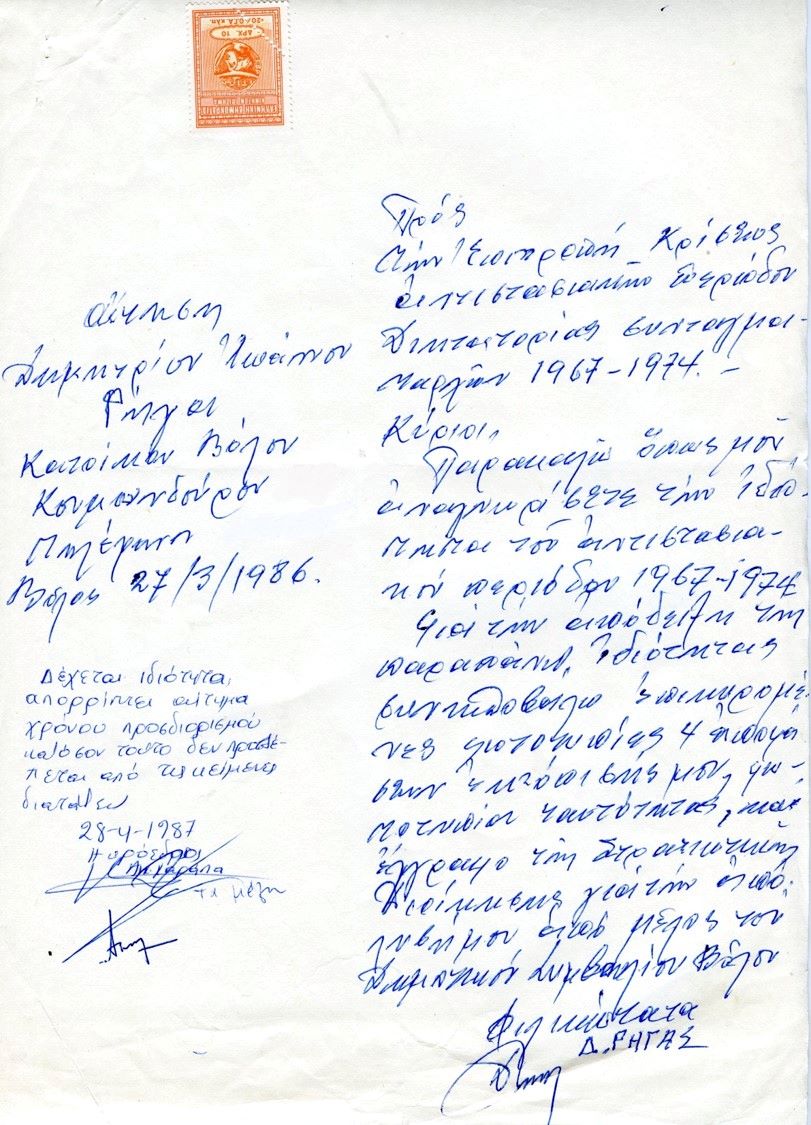 ΕΛΛΗΝΙΚΗ ΔΗΜΟΚΡΑΤΙΑ
ΔΡΧ. 10
+20% Ο.Γ.Α κλπ.
αἴτηση
Δημητρίου Ἰωάννου
Ρήγα
Κατοίκου Βόλου
Κουμουνδούρου
Βόλος 27/3/1986.
Δέχεται ιδιότητα,
απορρίπτει αίτημα
χρόνου προσδιορισμού
καθόσον τούτο δεν προβλέ-
πεται από τις κείμενες
διατάξεις
28-4-1987
Η πρόεδρος
Τα μέλη
Πρός
τήν Ἐπιτροπή Κρίσεως
ἀντιστασιακῶν περιόδου
Δικτατορίας συνταγμα-
ταρχῶν 1967-1974.-
Κύριοι,
Παρακαλῶ ὅπως μοῦ
ἀναγνωρίσετε τήν ἰδιό-
τητα τοῦ ἀντιστασια-
κοῦ περιόδου 1967-1974
Γιά τήν ἀπόδειξη τῆς
παραπάνω ἰδιότητας
συνυποβάλω ἐπικυρωμέ-
νες φωτοτυπίες 4 ἀποφά-
σεων ἐκτόπισής μου, φω-
τοτυπία ταυτότητας, καί
ἔγγραφο τῆς Στρατιωτικῆς
Διοίκησης γιά τήν ἀπό-
λυσή μου ἀπό μέλος τοῦ
Δημοτικοῦ Συμβουλίου Βόλου
Φιλικώτατα
Δ. ΡΗΓΑΣ